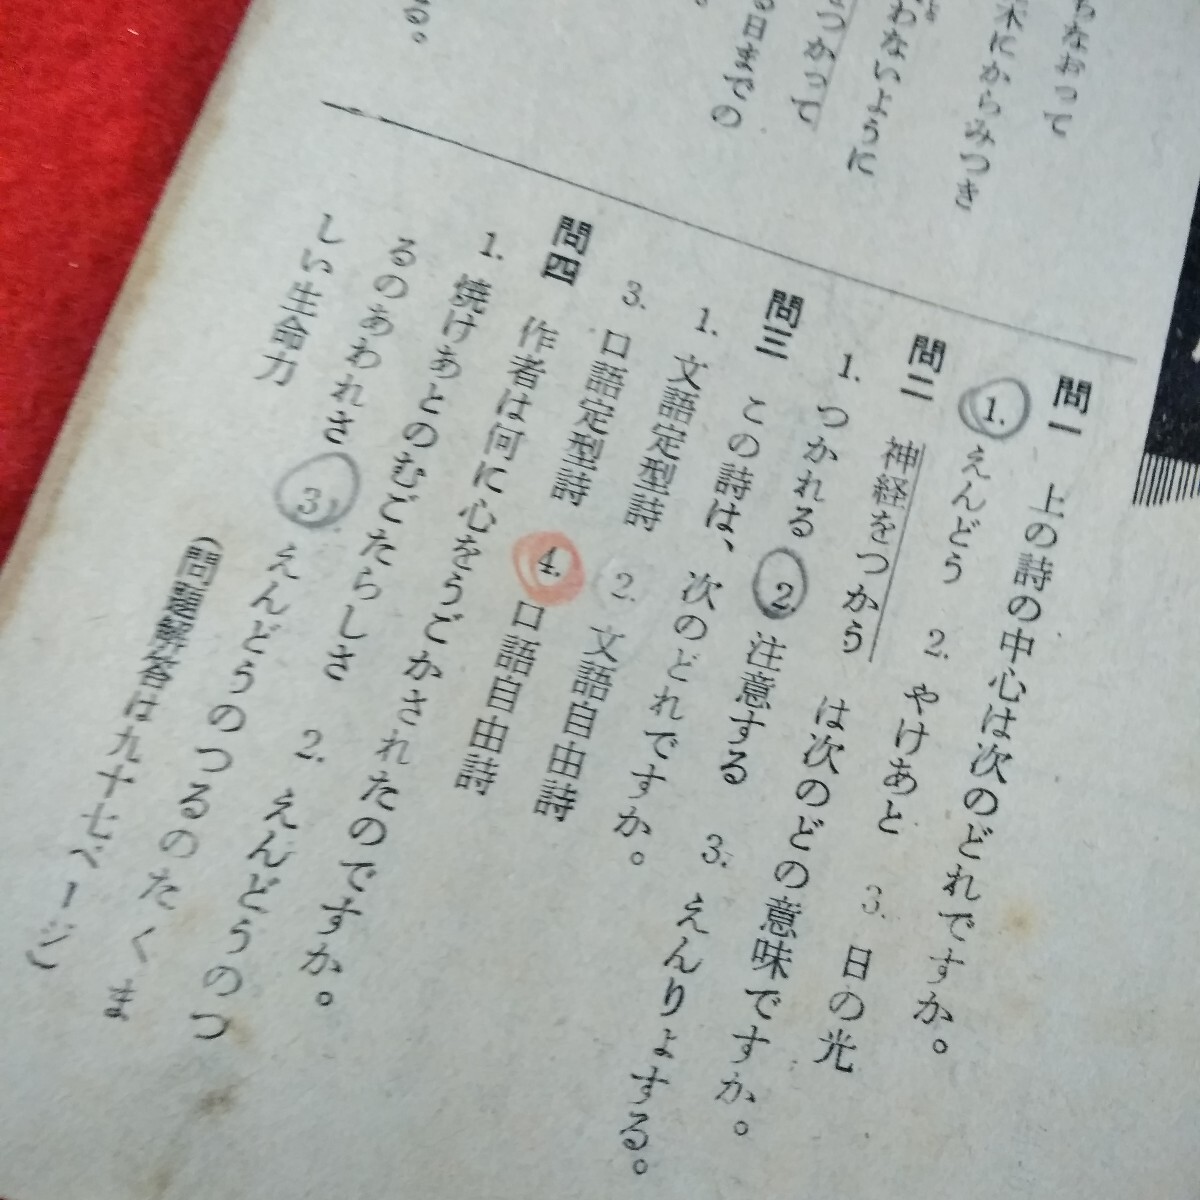 わなわって
木にからみつき
わないように
つかって
る日までの
る。
問一 上の詩の中心は次のどれですか。
1. えんどう 2. やけあと 3. 日の光
問二 神経をつかう は次のどの意味ですか。
1. つかれる 2. 注意する 3. えんりょする。
問三 この詩は、次のどれですか。
1. 文語定型詩 2. 文語自由詩
3. 口語定型詩 4. 口語自由詩
問四 作者は何に心をうごかされたのですか。
1. 焼けあとのむごたらしさ 2. えんどうのつ
るのあわれさ 3. えんどうのつるのたくま
しい生命力
(問題解答は九十七ページ)